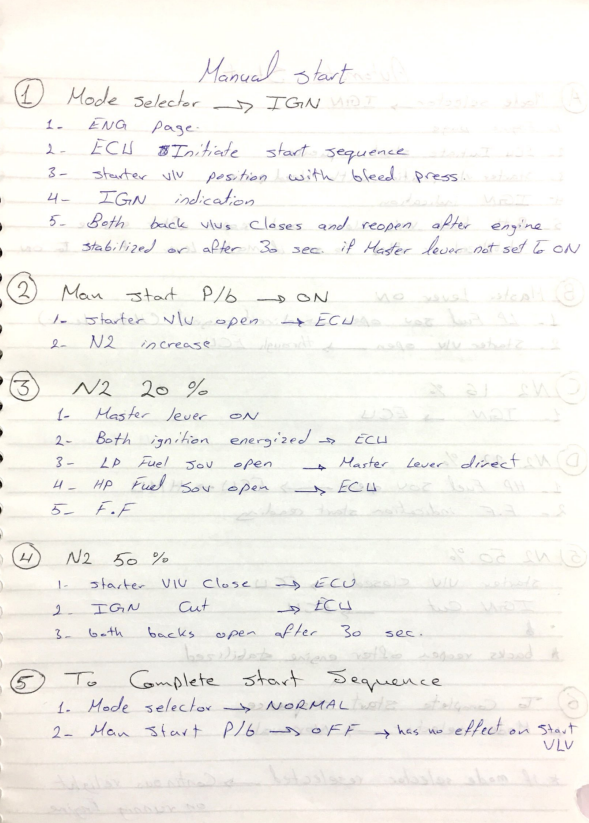 Manual start
① Mode selector → IGN
1- ENG page.
2- ECU Initiate start sequence
3- starter vlv position with bleed press.
4- IGN indication
5- Both back vlvs closes and reopen after engine
stabilized or after 30 sec if Master lever not set to ON
② Man start P/b → ON
1- starter vlv open → ECU
2- N2 increase
③ N2 20 %
1- Master lever ON
2- Both ignition energized → ECU
3- LP Fuel sov open → Master Lever direct
4- HP Fuel sov open → ECU
5- F.F
④ N2 50 %
1- starter vlv close → ECU
2- IGN Cut → ECU
3- both backs open after 30 sec.
⑤ To Complete start Sequence
1. Mode selector → NORMAL
2- Man start P/b → OFF → has no effect on start
VLV